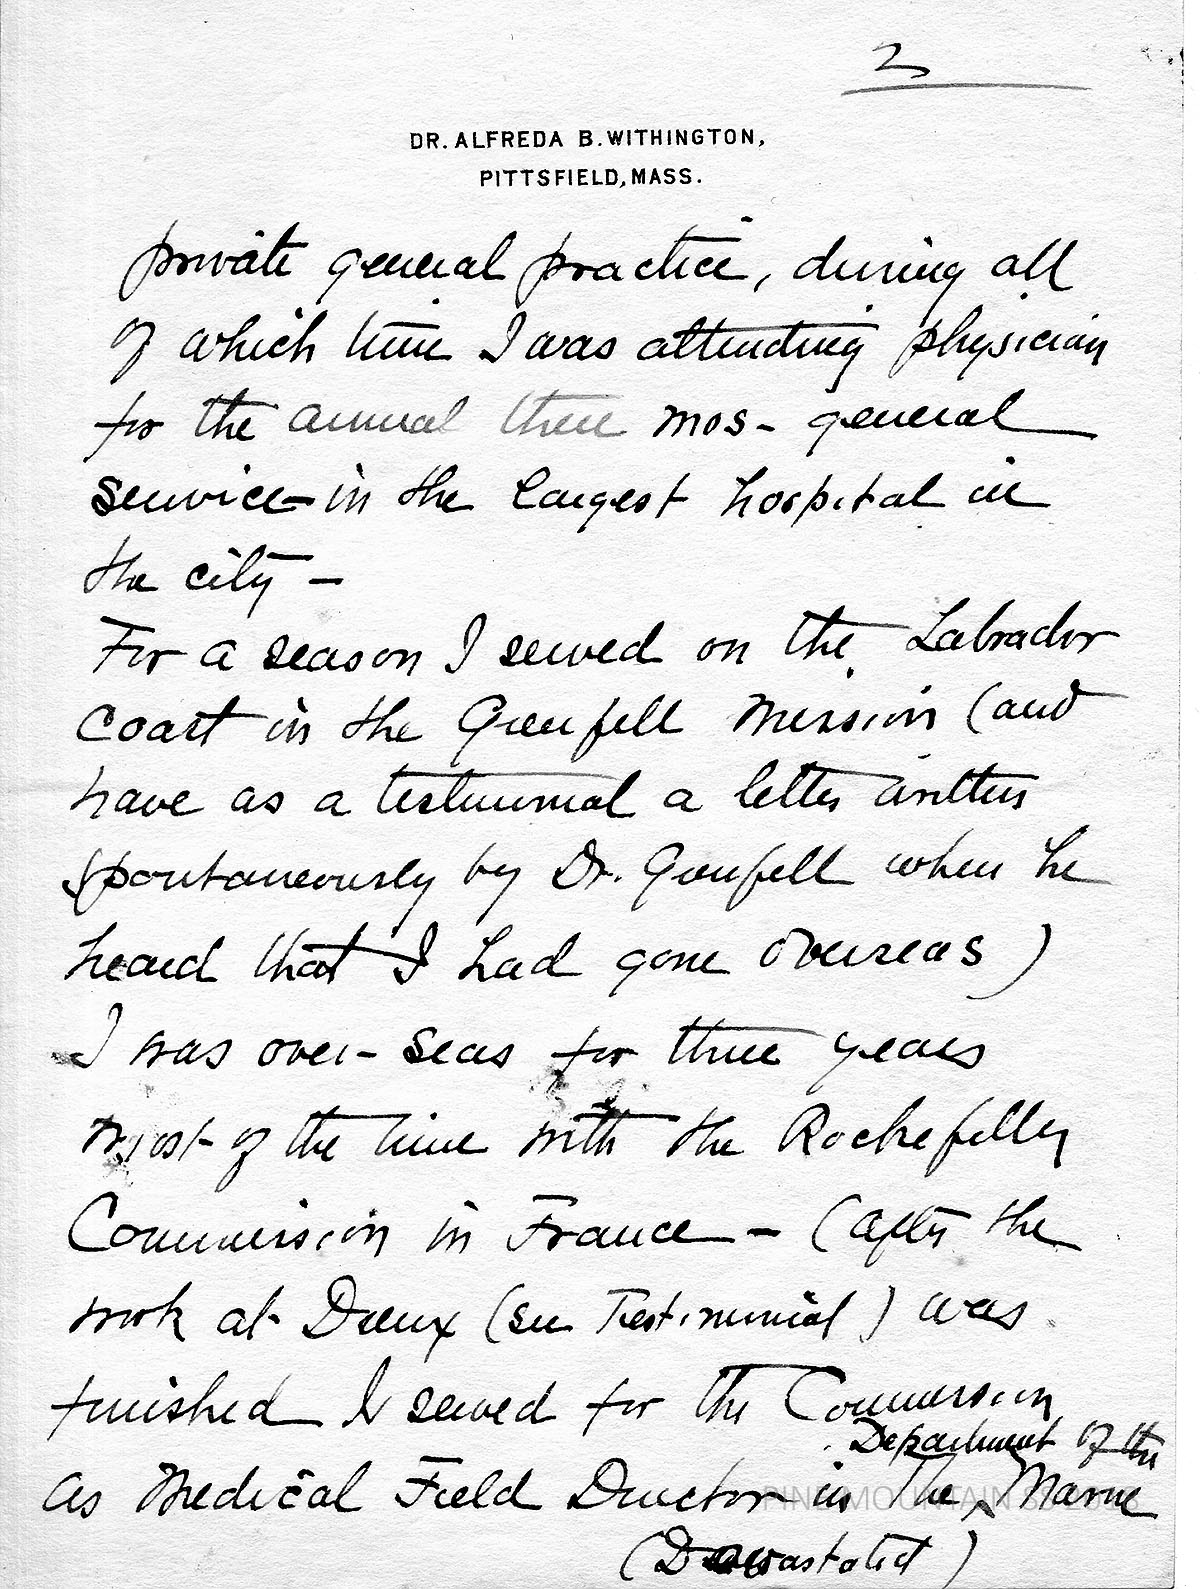 2
DR. ALFREDA B. WITHINGTON,
PITTSFIELD, MASS.
private general practice, during all
of which time I was attending physician
for the annual three mos- general
service in the largest hospital in
the city -
For a season I served on the Labrador
Coast in the Grenfell Mission (and
have as a testimonial a letter written
spontaneously by Dr. Grenfell when he
heard that I had gone overseas)
I was over-seas for three years
most of the time with the Rockefeller
Commission in France - (after the
work at Dreux (see Testimonial) was
finished I served for the Commission
Department of the
as Medical Field Director in the ^ Marne
(Devastated)
PINE MOUNTAIN